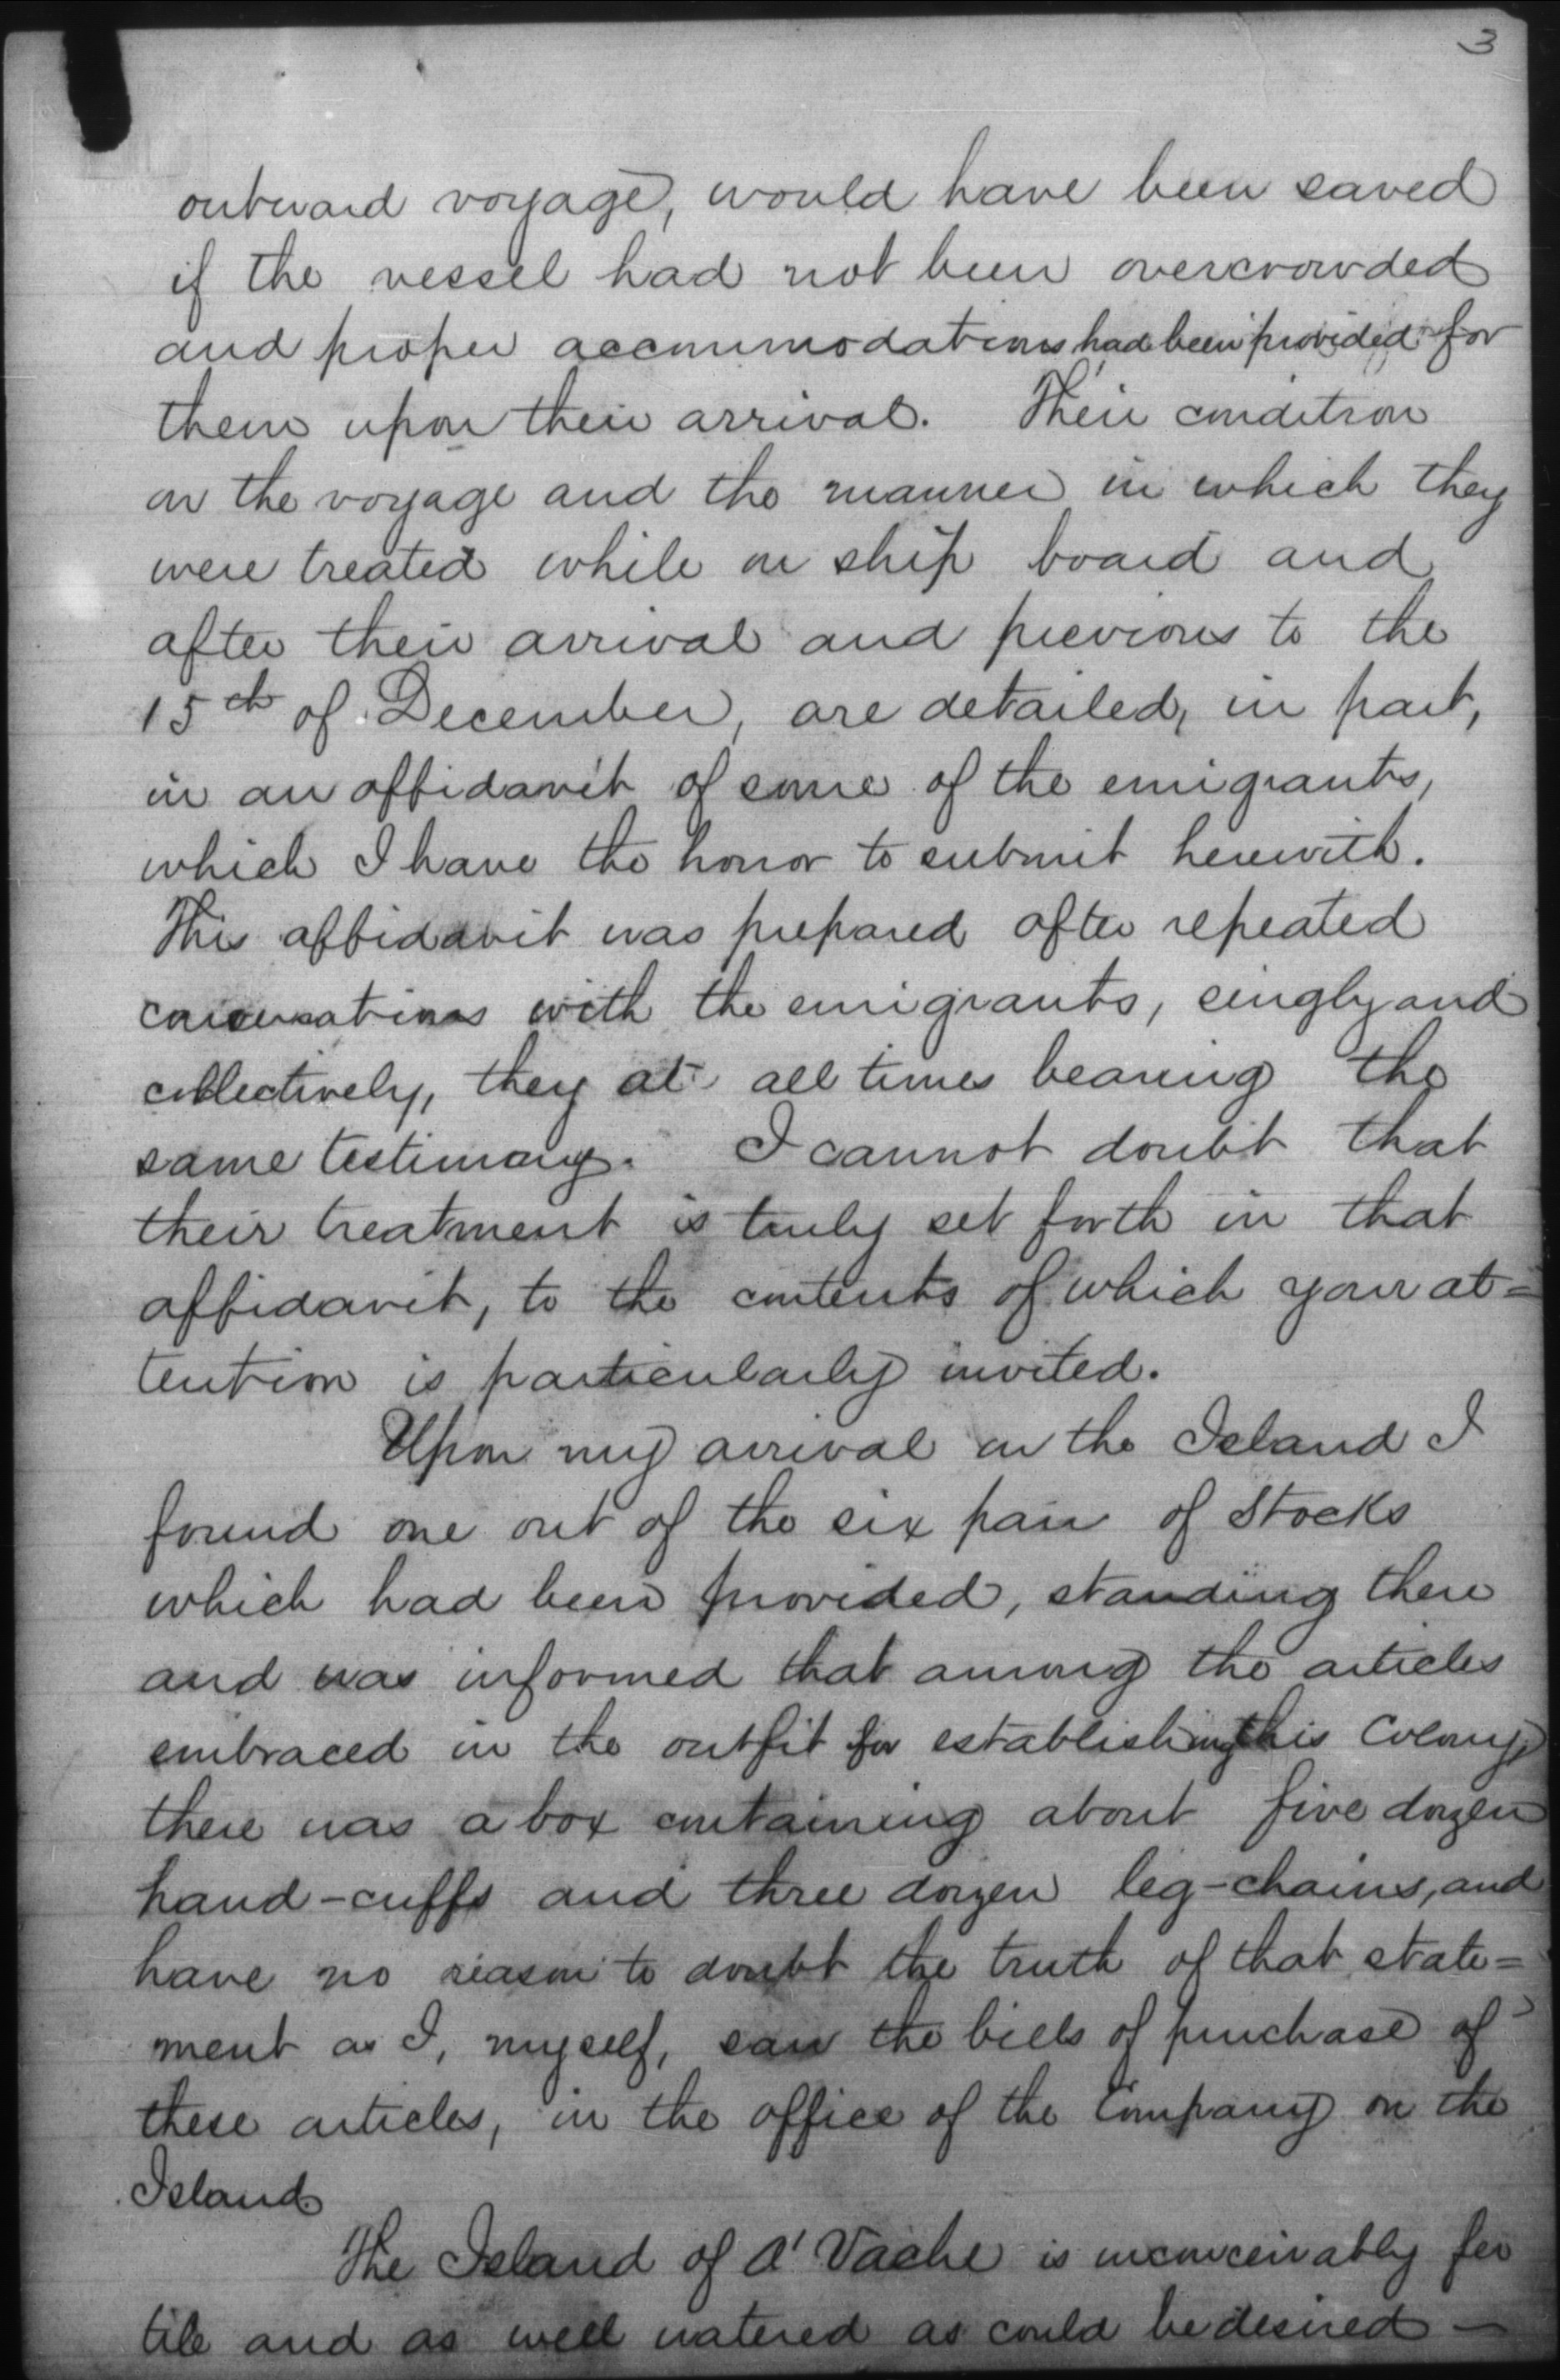 3
outward voyage, would have been saved
if the vessel had not been overcrowded
and proper accommodations had been provided for
them upon their arrival. Their condition
on the voyage and the manner in which they
were treated while on ship board and
after their arrival and previous to the
15th of December, are detailed, in part,
in an affidavit of some of the emigrants,
which I have the honor to submit herewith.
This affidavit was prepared after repeated
conversations with the emigrants, singly and
collectively, they at all times bearing the
same testimony. I cannot doubt that
their treatment is truly set forth in that
affidavit, to the contents of which your at=
tention is particularly invited.
Upon my arrival on the Island I
found one out of the six pair of Stocks
which had been provided, standing there
and was informed that among the articles
embraced in the outfit for establishing this Colony,
there was a box containing about five dozen
hand-cuffs and three dozen leg-chains, and
have no reason to doubt the truth of that state=
ment as I, myself, saw the bills of purchase of
these articles, in the office of the Company on the
Island.
The Island of A' Vache is inconceivably fer
tile and as well watered as could be desired —